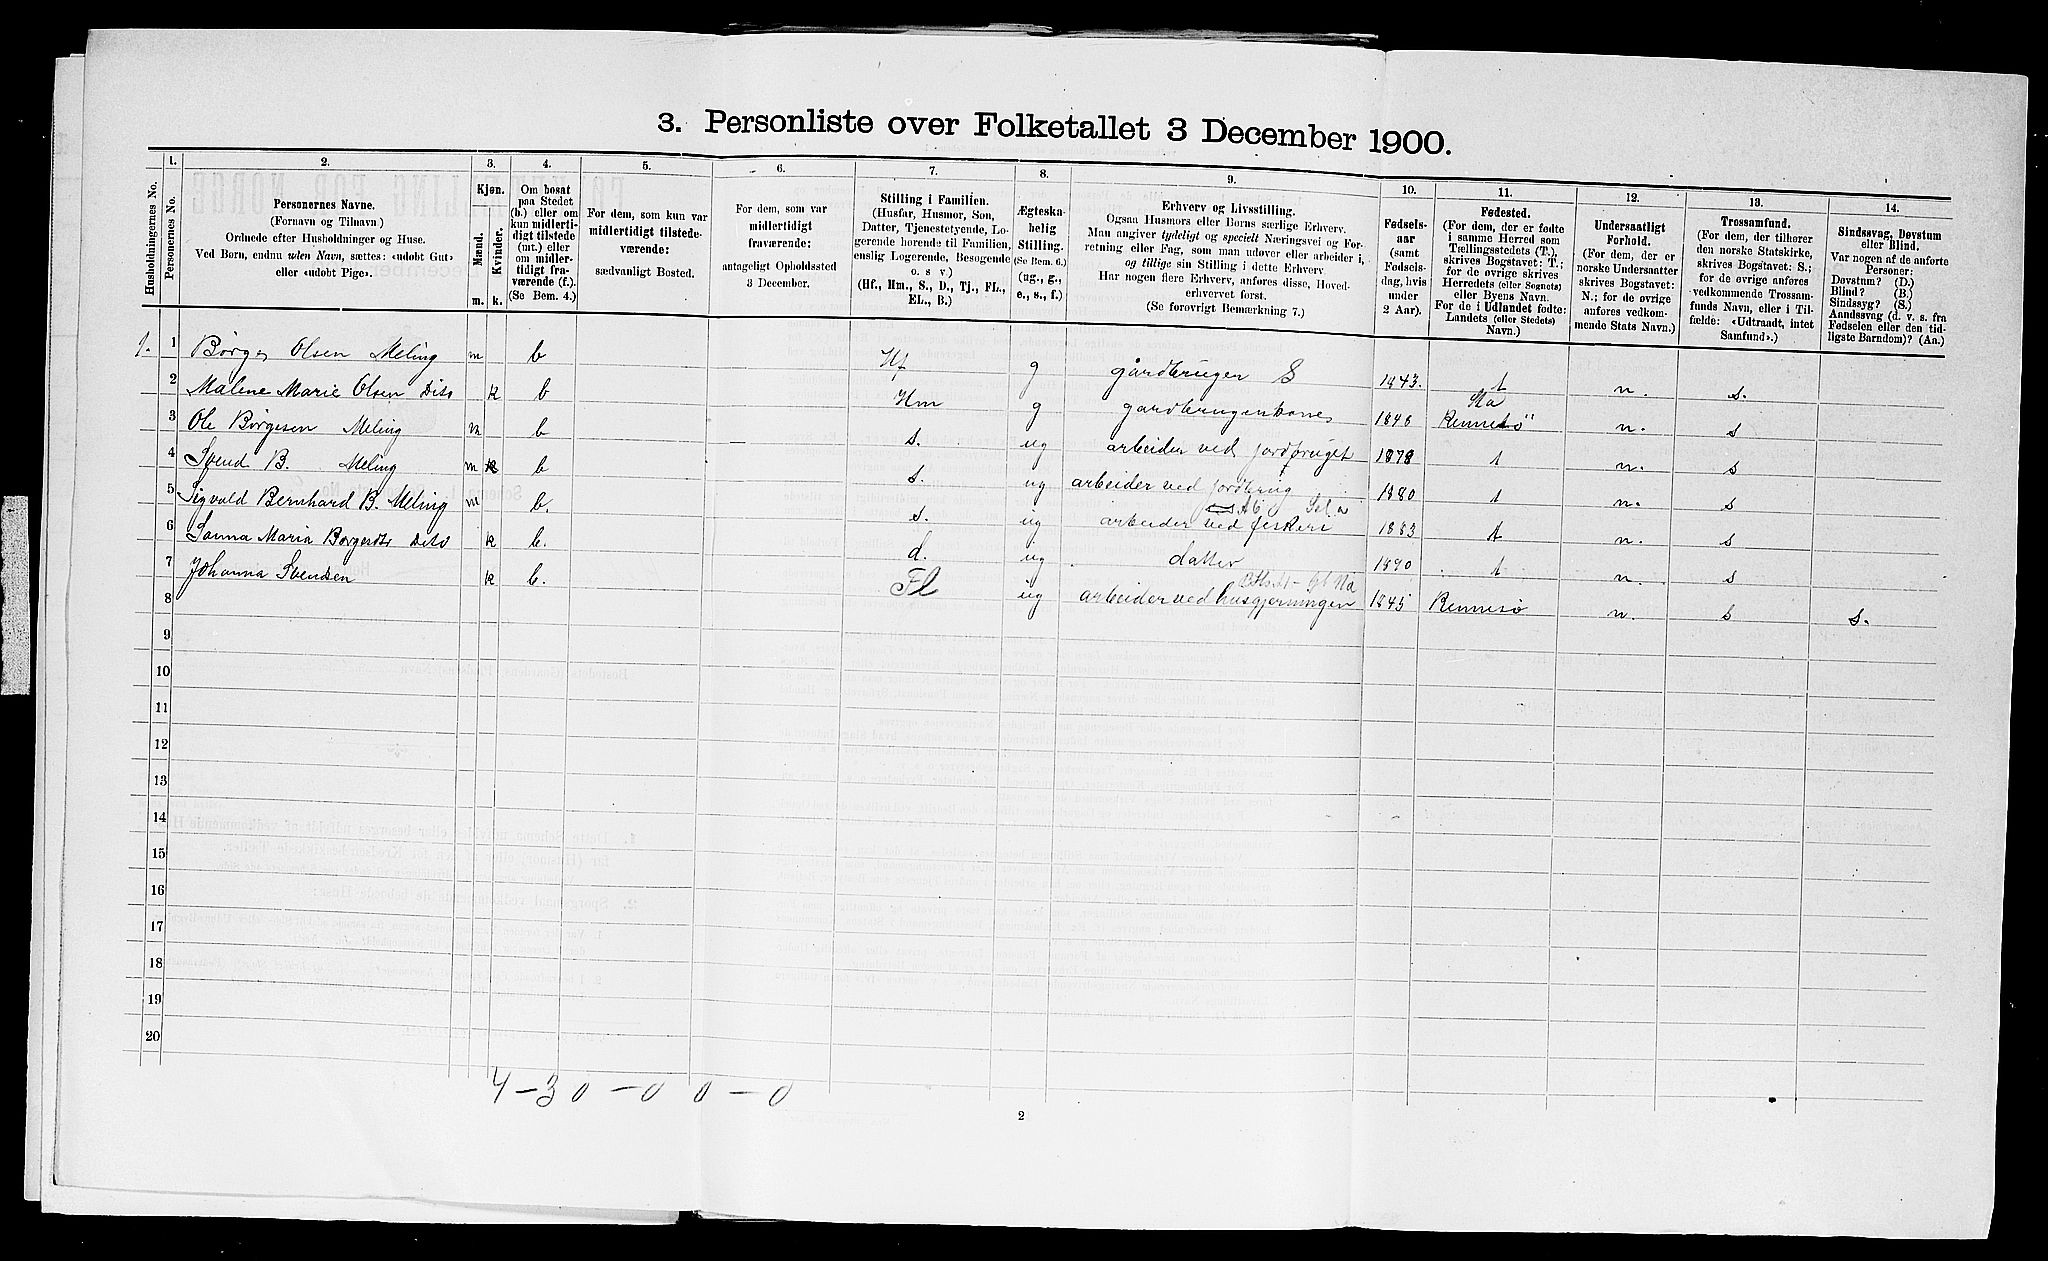 3. Personliste over Folketallet 3 December 1900.
Husholdningernes No.
1.
Personernes No.
2.
Personernes Navne.
(Fornavn og Tilnavn)
Ordnede efter Husholdninger og Huse.
Ved Børn, endnu uden Navn, sættes: «udøbt Gut»
eller «udøbt Pige».
3.
Kjøn.
Mænd.
Kvinder.
m. k.
4.
Om bosat
paa Stedet
(b.) eller om
kun midlerti-
digt tilstede
(mt.) eller
om midler-
tidigt fra-
værende (f.).
(Se Bem. 4.)
5.
For dem, som kun var
midlertidigt tilstede-
værende:
sædvanligt Bosted.
6.
For dem, som var
midlertidigt
fraværende:
antageligt Opholdssted
3 December.
7.
Stilling i Familien.
(Husfar, Husmor, Søn,
Datter, Tjenestetyende, Lo-
gerende hørende til Familien,
enslig Logerende, Besøgende
o. s v.)
(Hf., Hm., S., D., Tj., FL.,
EL., B.)
8.
Ægteska-
belig
Stilling.
(Se Bem. 6.)
(ug., g.,
e., s., f.)
9.
Erhverv og Livsstilling.
Ogsaa Husmors eller Børns særlige Erhverv.
Man angiver tydeligt og specielt Næringsvei og For-
retning eller Fag, som man udøver eller arbeider i,
og tillige sin Stilling i dette Erhverv
Har nogen flere Erhverv, anføres disse, Hoved-
erhvervet først.
(Se forøvrigt Bemærkning 7.)
10.
Fødsels-
aar
(samt
Fødsels-
dag, hvis
under
2 Aar).
11.
Fødested.
(For dem, der er fødte
i samme Herred som
Tællingsstedets (T.),
skrives Bogstavet: T.;
for de øvrige skrives
Herredets (eller Sognets)
eller Byens Navn.
For de i Udlandet fødte:
Landets (eller Stedets)
Navn.)
12.
Undersaatligt
Forhold.
(For dem, der er
norske Undersaatter
skrives Bogstavet:
N.; for de øvrige
anføres vedkom-
mende Stats Navn.)
13.
Trossamfund.
(For dem, der tilhører
den norske Statskirke,
skrives Bogstavet: S.;
for de øvrige anføres
vedkommende Trossam-
funds Navn, eller i Til-
fælde: «Udtraadt, intet
Samfund».)
14.
Sindssvag, Døvstum
eller Blind.
Var nogen af de anførte
Personer:
Døvstum? (D.)
Blind? (B.)
Sindssyg? (S.)
Aandssvag (d. v. s. fra
Fødselen eller den tid-
ligste Barndom)? (Aa.)
1. 1 Børge Olsen Meling m b Hf g gårdbruger S 1843. t n. s.
2 Malene Marie Olsen Dito k b Hm g gardbrugerkone 1848 Rennesö n. s
3 Ole Börgesen Meling m b s. ug arbeider ved jordbruget 1878 t n. s
4 Svend B. Meling m b s. ug arbeider ved jordbrug 1880 t n. s
5 Sigvald Bernhard B. Meling m b. s. ug arbeider ved fiskeri 1883 t n. s
6 Sanna Maria Børgesdtr Dito k b. d. ug datter 1890 t n. s
7 Johanna Svendsen k b. Fl ug arbeider ved husgjerningen 1845 Rennesö n. s s.
8
9
10
11
12
13
14
15
16
17
18
19
20
4 – 3 0 – 0 0 – 0
2